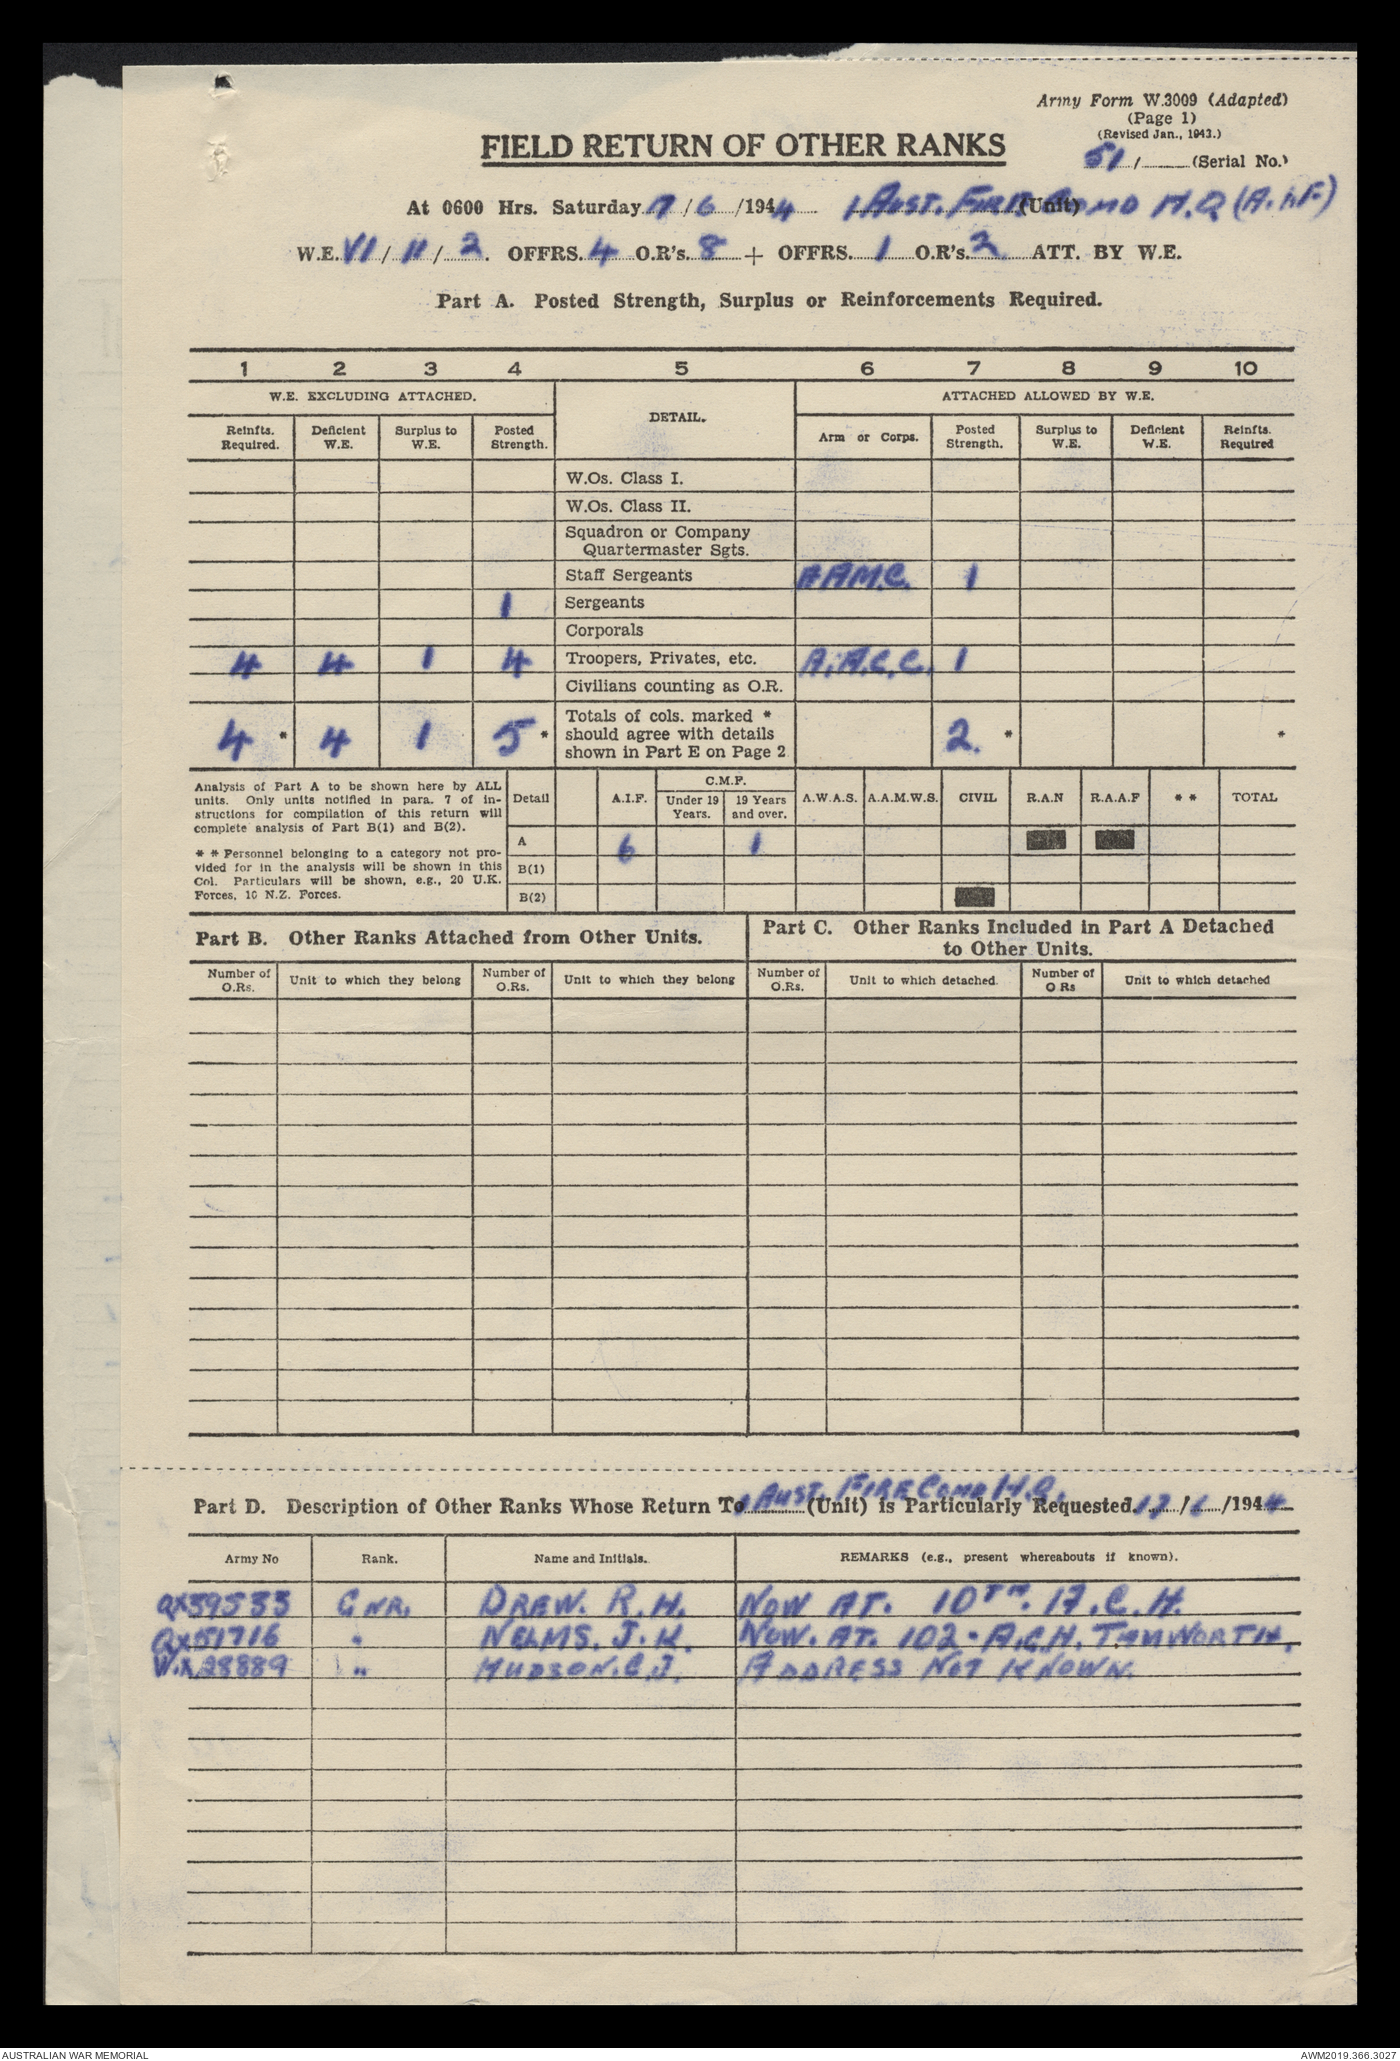 Army Form W.3009 (Adapted)
(Page 1)
(Revised Jan., 1943.)
FIELD RETURN OF OTHER RANKS
51 / (Serial No.)
At 0600 Hrs. Saturday 17 / 6 /1944 1 Aust. Fire Comd H.Q (A.I.F.) (Unit)
W.E. VI / 11 / 2. OFFRS. 4 O.R's. 8 + OFFRS. 1 O.R's. 2 ATT. BY W.E.
Part A. Posted Strength, Surplus or Reinforcements Required.
1 2 3 4 5 6 7 8 9 10
W.E. EXCLUDING ATTACHED. DETAIL. ATTACHED ALLOWED BY W.E.
Reinfts. Required. Deficient W.E. Surplus to W.E. Posted Strength. Arm or Corps. Posted Strength. Surplus to W.E. Deficient W.E. Reinfts. Required
W.Os. Class I.
W.Os. Class II.
Squadron or Company
Quartermaster Sgts.
Staff Sergeants AAMC. 1
1 Sergeants
Corporals
4 4 1 4 Troopers, Privates, etc. A.A.C.C. 1
Civilians counting as O.R.
4 * 4 1 5 * Totals of cols. marked * should agree with details shown in Part E on Page 2 2. * *
Analysis of Part A to be shown here by ALL
units. Only units notified in para. 7 of in-
structions for compilation of this return will
complete analysis of Part B(1) and B(2).
* * Personnel belonging to a category not pro-
vided for in the analysis will be shown in this
Col. Particulars will be shown, e.g., 20 U.K.
Forces, 10 N.Z. Forces.
Detail A.I.F. C.M.F. Under 19 Years. 19 Years and over. A.W.A.S. A.A.M.W.S. CIVIL R.A.N R.A.A.F * * TOTAL
A 6 1
B(1)
B(2)
Part B. Other Ranks Attached from Other Units.
Part C. Other Ranks Included in Part A Detached
to Other Units.
Number of O.Rs. Unit to which they belong Number of O.Rs. Unit to which they belong Number of O.Rs. Unit to which detached. Number of O Rs Unit to which detached
Part D. Description of Other Ranks Whose Return To 1 Aust. Fire Comd H.Q. (Unit) is Particularly Requested. 17 / 6 /1944
Army No Rank. Name and Initials. REMARKS (e.g., present whereabouts if known).
QX39533 GNR. DREW. R.H. NOW AT. 10TH. A.C.H.
QX51716 " NELMS. J.K. NOW. AT. 102. A.C.H. TAMWORTH.
WX28889 " HUDSON. C.J. ADDRESS NOT KNOWN.
AUSTRALIAN WAR MEMORIAL
AWM2019.366.3027